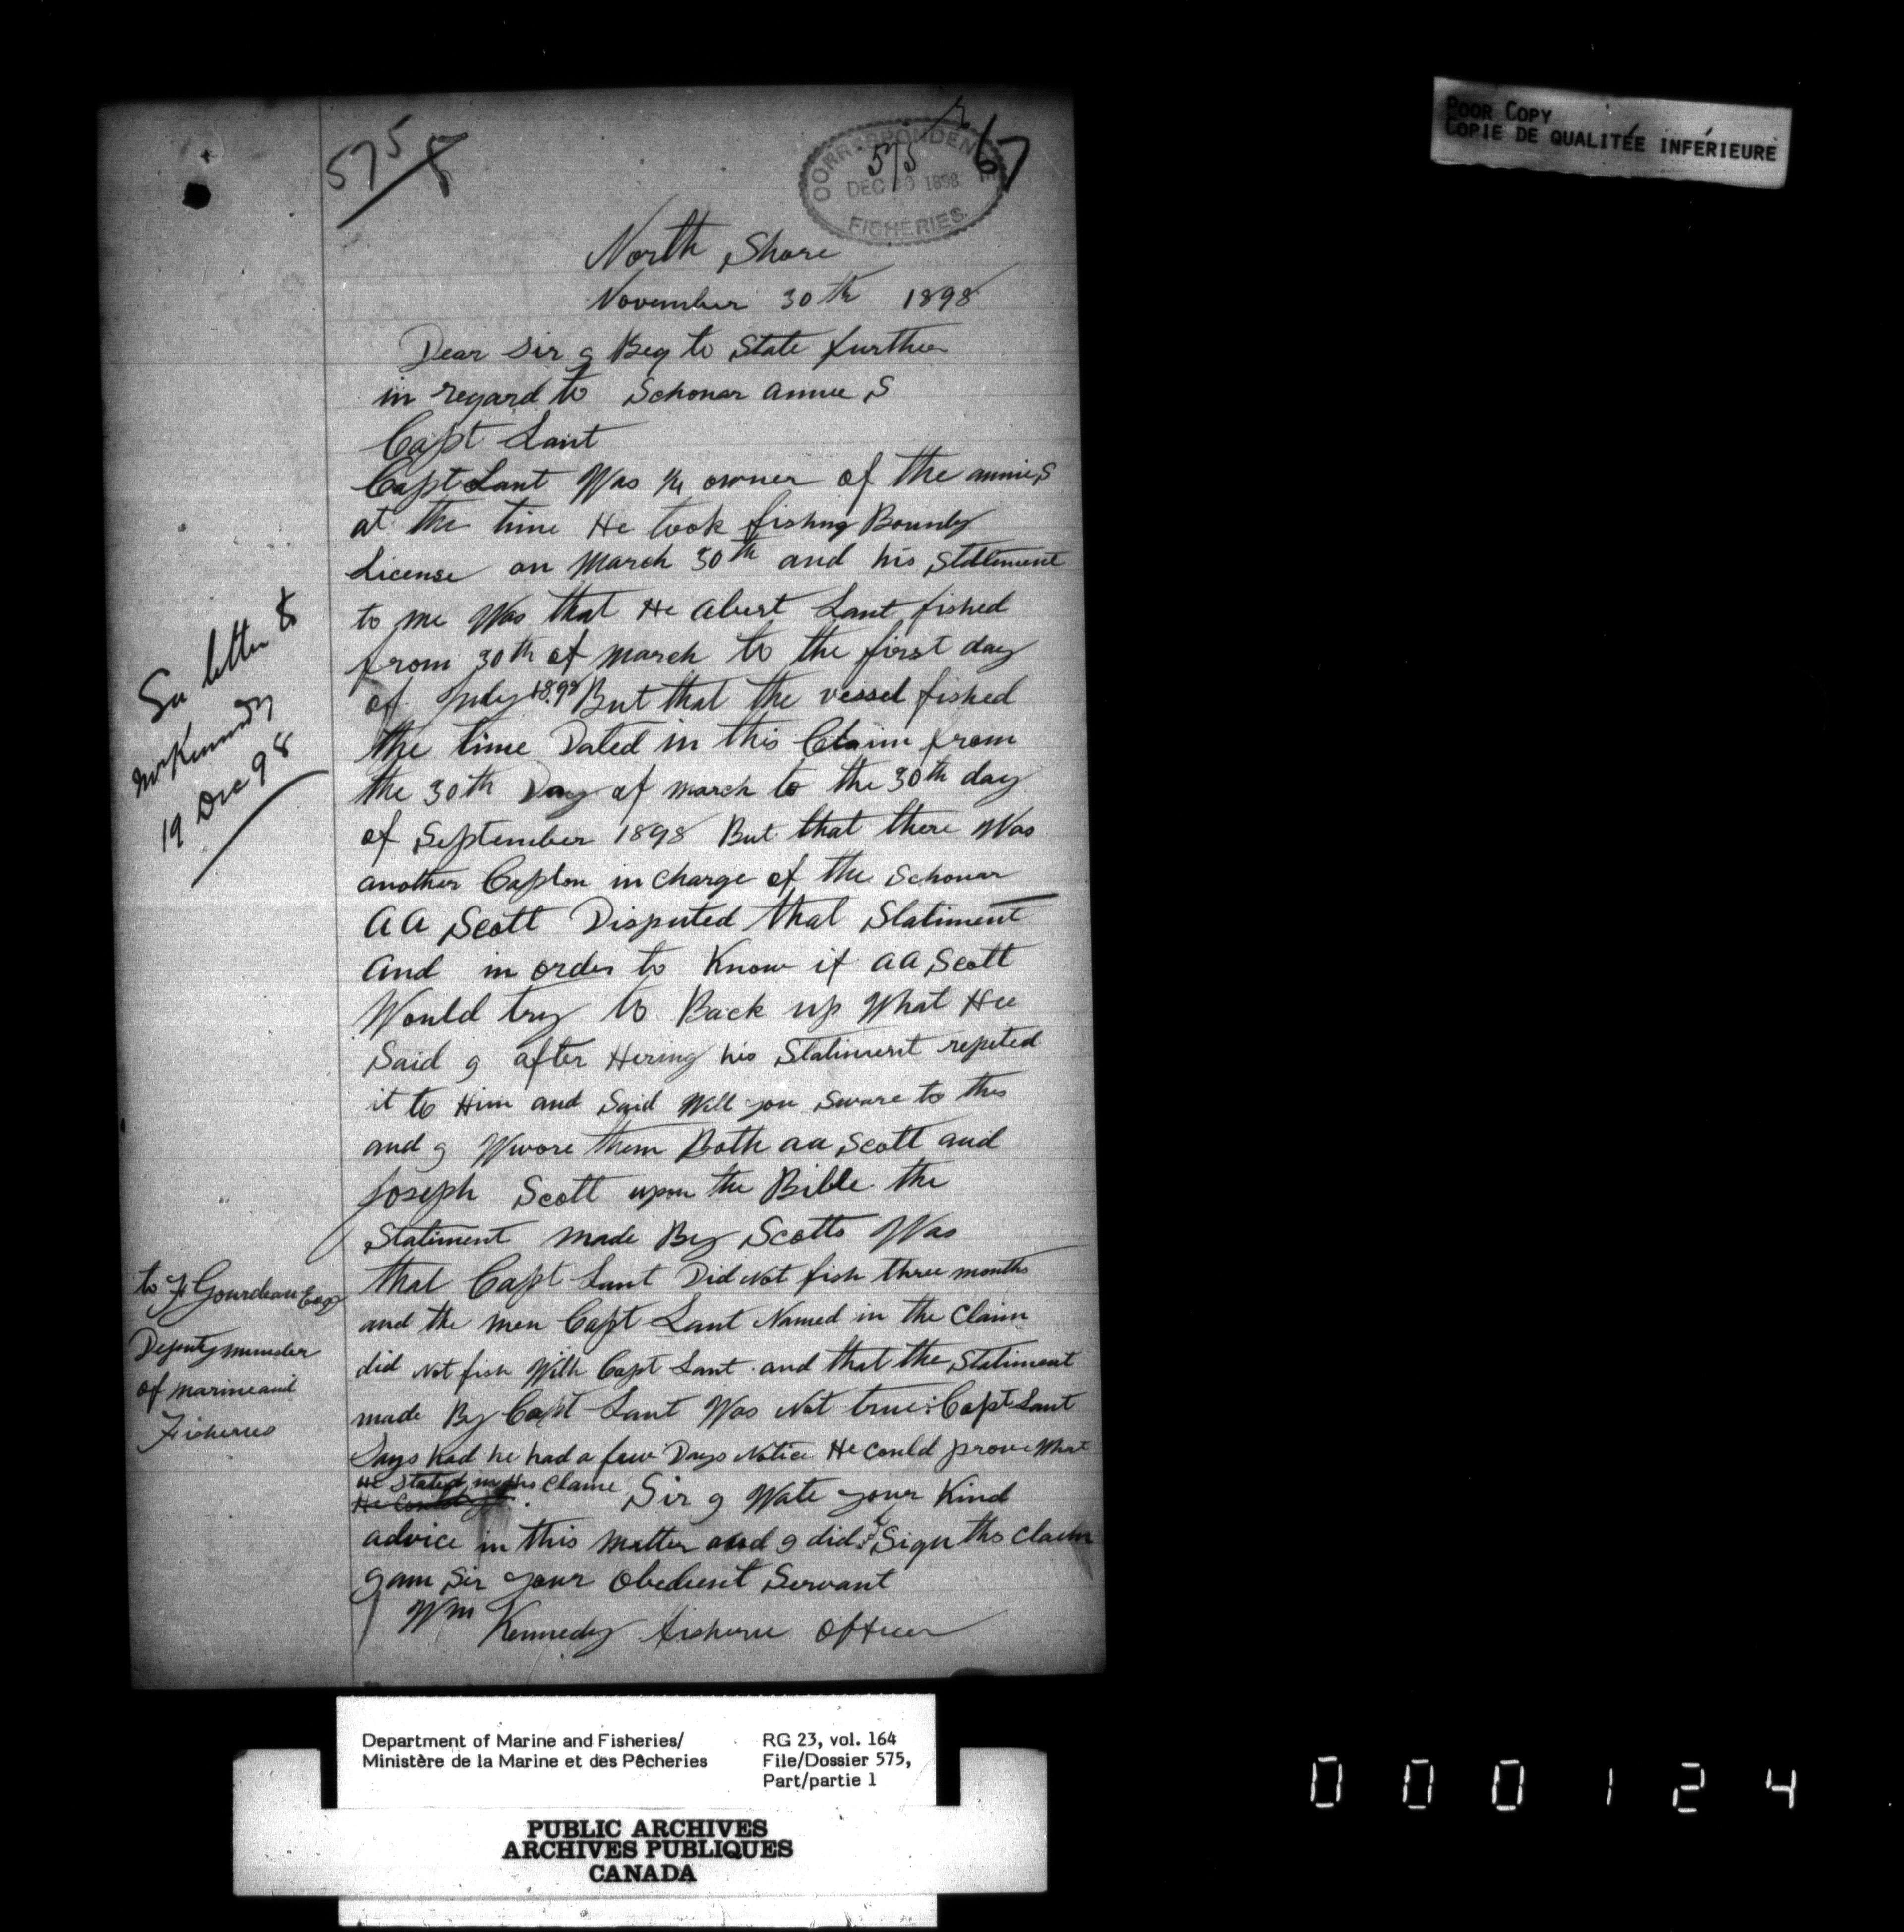 POOR COPY
COPIE DE QUALITÉE INFÉRIEURE
575
CORRESPONDENCE
575
DEC 1898
FICHERIES.
67
North Shore
November 30th 1898
Dear Sir I Beg to State further
in regard to Schonar annie S
Capt Lant
Capt Lant Was 1/4 owner of the annie S
at the time He took fishing Bounty
License on March 30th and his Statement
to me Was that He Abert Lant fished
from 30th of march to the first day
of July 1898 But that the vessel fished
the time Dated in this Claim from
the 30th Day of march to the 30th day
of September 1898 But that there Was
another Capton in charge of the Schonar
A A Scott Disputed that Statiment
and in order to Know if A A Scott
Would try to Back up What Hee
Said I after Hering his Statiment repited
it to Him and Said Will you Sware to this
and I Swore them Both aa Scott and
Joseph Scott upon the Bible the
Statiment made By Scotts Was
that Capt Lant Did Not fish three months
and the men Capt Lant Named in the Claim
did Not fish With Capt Lant and that the Statiment
made By Capt Lant Was Not true: Capt Lant
Says had he had a few Days Notice He Could prove What
He Stated in His Claime Sir I Wate your Kind
advice in this matter and I did Sign the Claim
I am Sir your Obedient Servant
Wm Kennedy fisherie Officer
See letter to
Mr Kennedy
19 Dec 98
to F Gourdeau Esq
Deputy minister
of marine and
Fisheries
Department of Marine and Fisheries/
Ministère de la Marine et des Pêcheries
RG 23, vol. 164
File/Dossier 575,
Part/partie 1
PUBLIC ARCHIVES
ARCHIVES PUBLIQUES
CANADA
000124